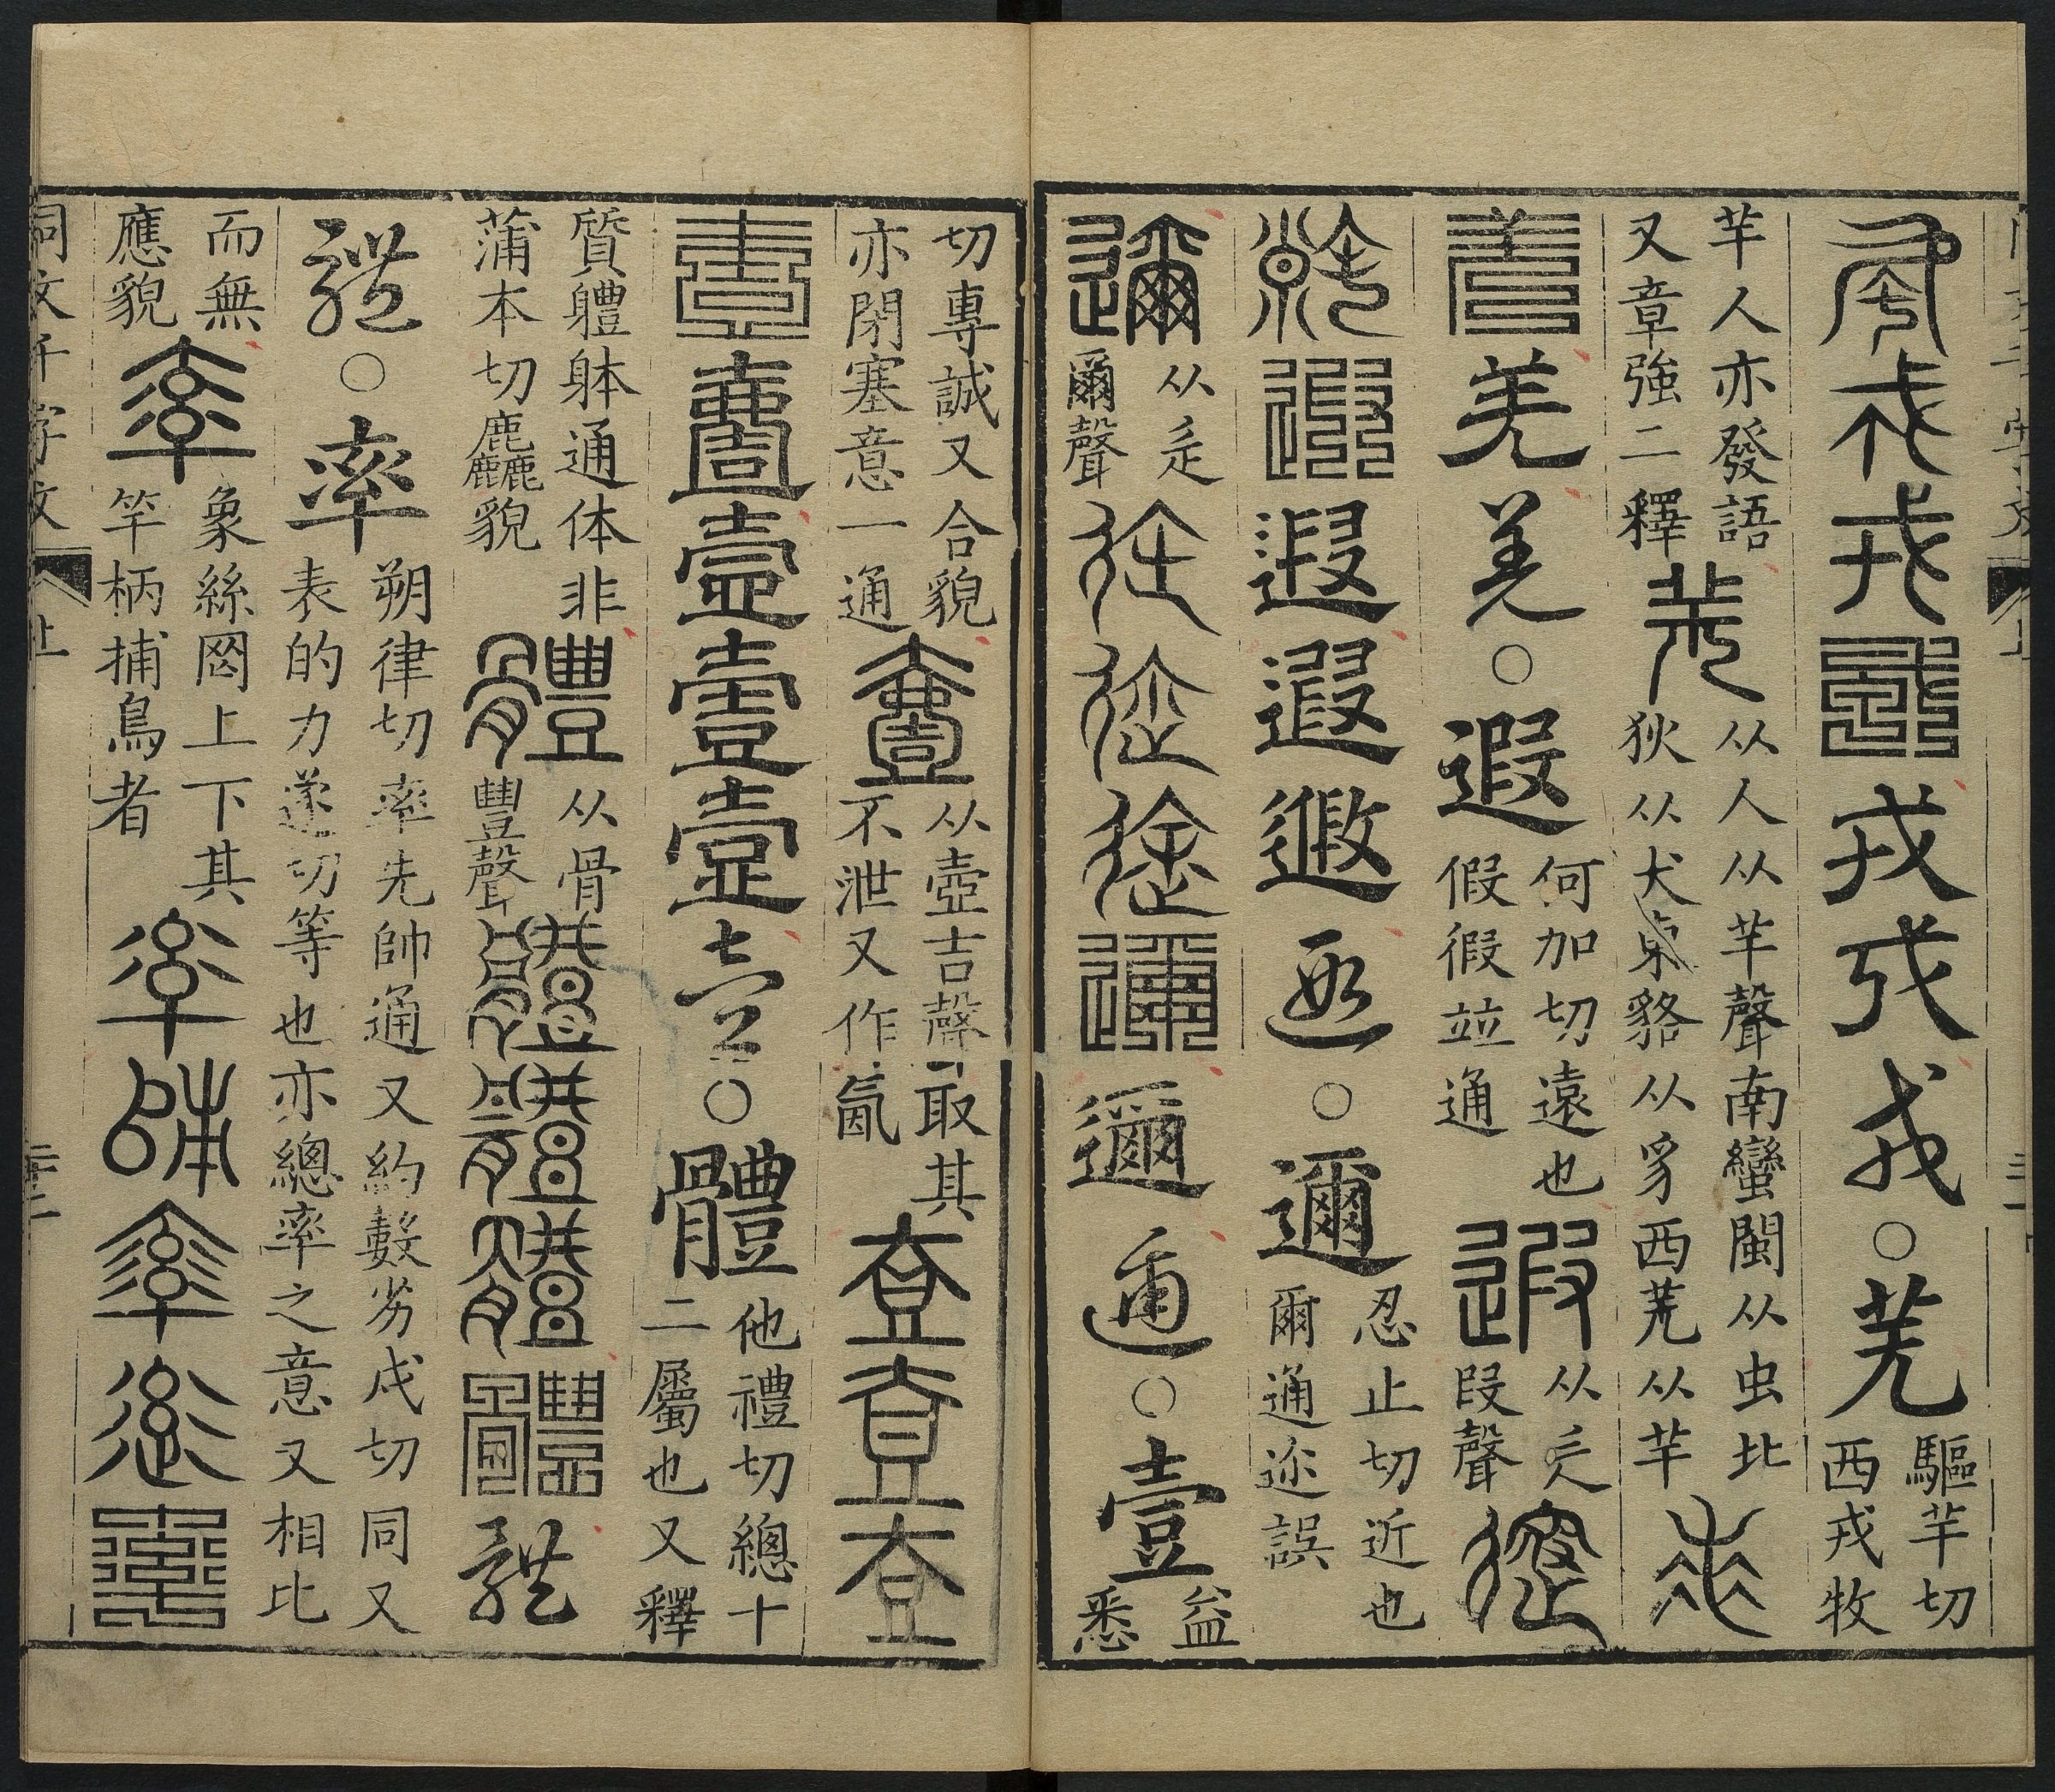 戎戎戎戎戎戎戎○羌驅羊切西戎牧
羊人亦發語又章強二釋羌从人从羊聲南蠻閩从虫北狄从犬東貉从豸西羌从羊
羌羌羌○遐何加切遠也假徦竝通遐从辵叚聲
遐遐遐遐遐○邇忍止切近也爾通迩誤
邇从辵爾聲邇邇邇邇邇邇○壹益悉
切專誠又合貌亦閉塞意一通壹从壺吉聲取其不泄又作氤壹壹壹
壹壹壹壹壹壹○體他禮切總十二屬也又釋
質軆躰通体非蒲本切麤貌體从骨豊聲體體體體體
體○率朔律切率先帥通又約數劣戌切同又表的力遂切等也亦總率之意又相比
而無應貌率象絲罔上下其竿柄捕鳥者率率率率率
同文千字文 上 二十二